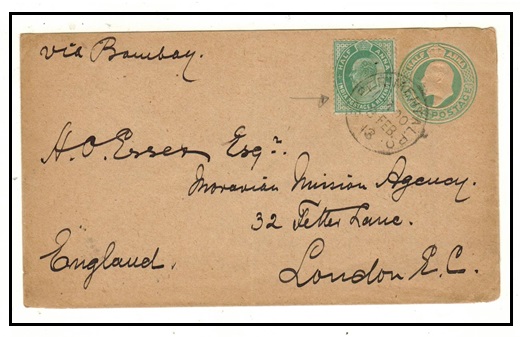 via Bombay.
HALF ANNA
HALF ANNA
POSTAGE
FEB
13
H. O. Esser Esqr.
Moravian Mission Agency.
32 Fetter Lane.
England.
London E.C.